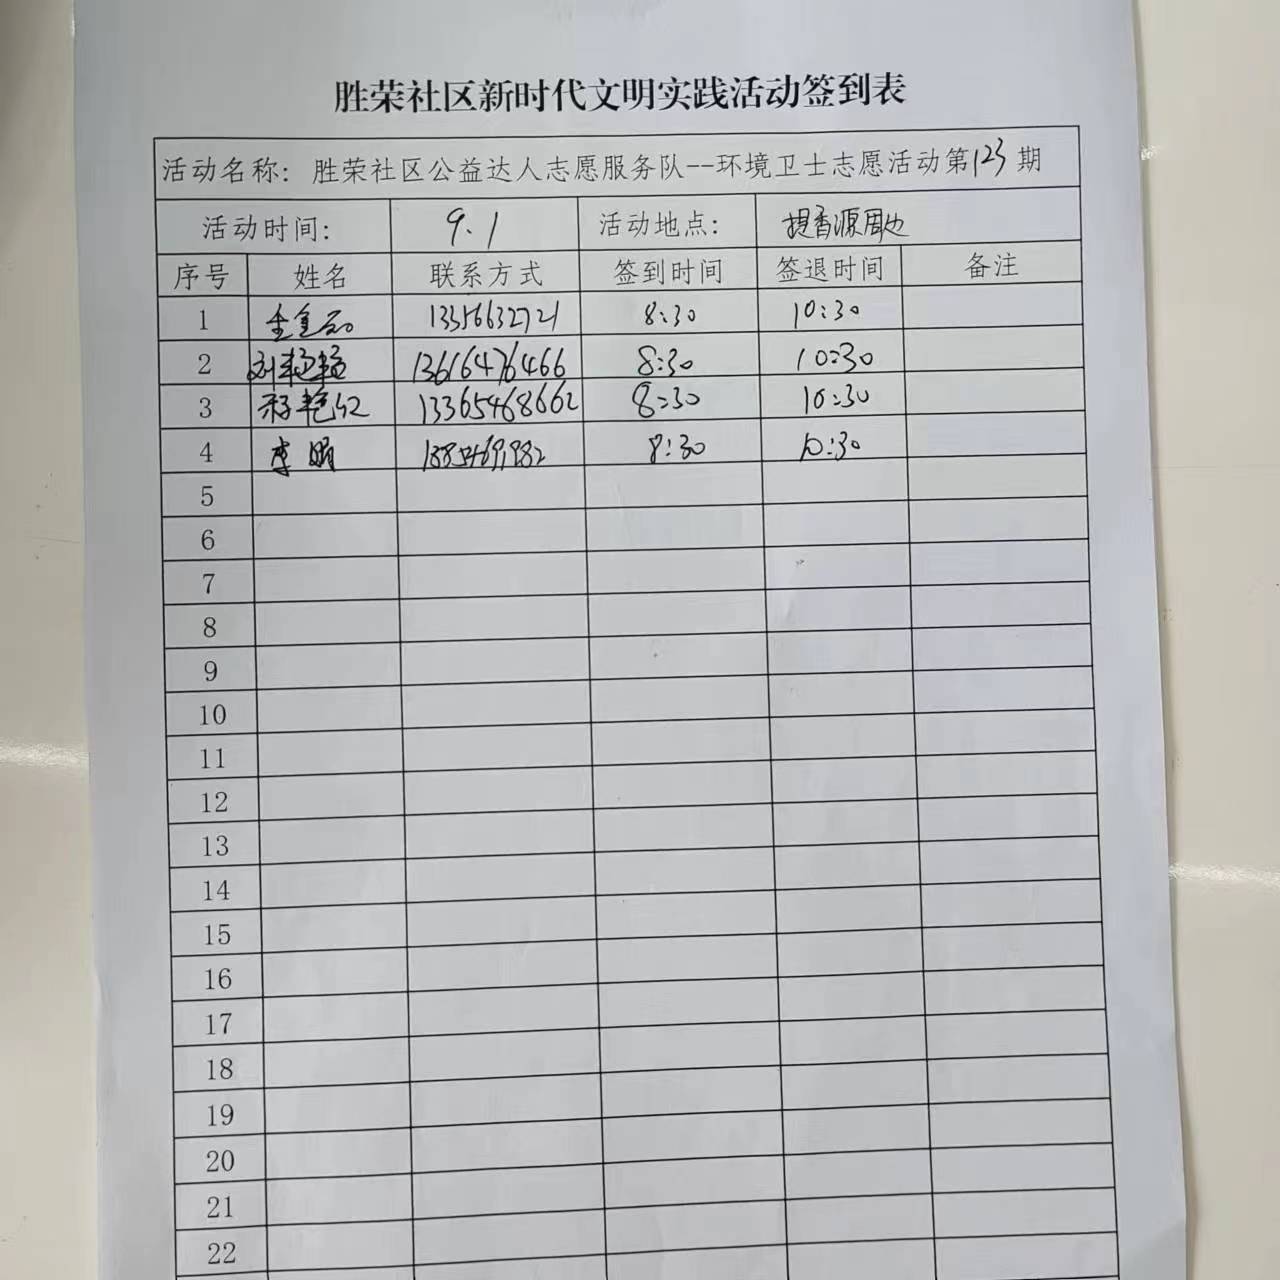 胜荣社区新时代文明实践活动签到表
活动名称：胜荣社区公益达人志愿服务队--环境卫士志愿活动第123期
活动时间： 9.1 活动地点： 提香源周边
序号 姓名 联系方式 签到时间 签退时间 备注
1 13356632721 8:30 10:30
2 刘艳艳 13616476466 8:30 10:30
3 13365468662 8:30 10:30
4 李娟 8:30 10:30
5
6
7
8
9
10
11
12
13
14
15
16
17
18
19
20
21
22